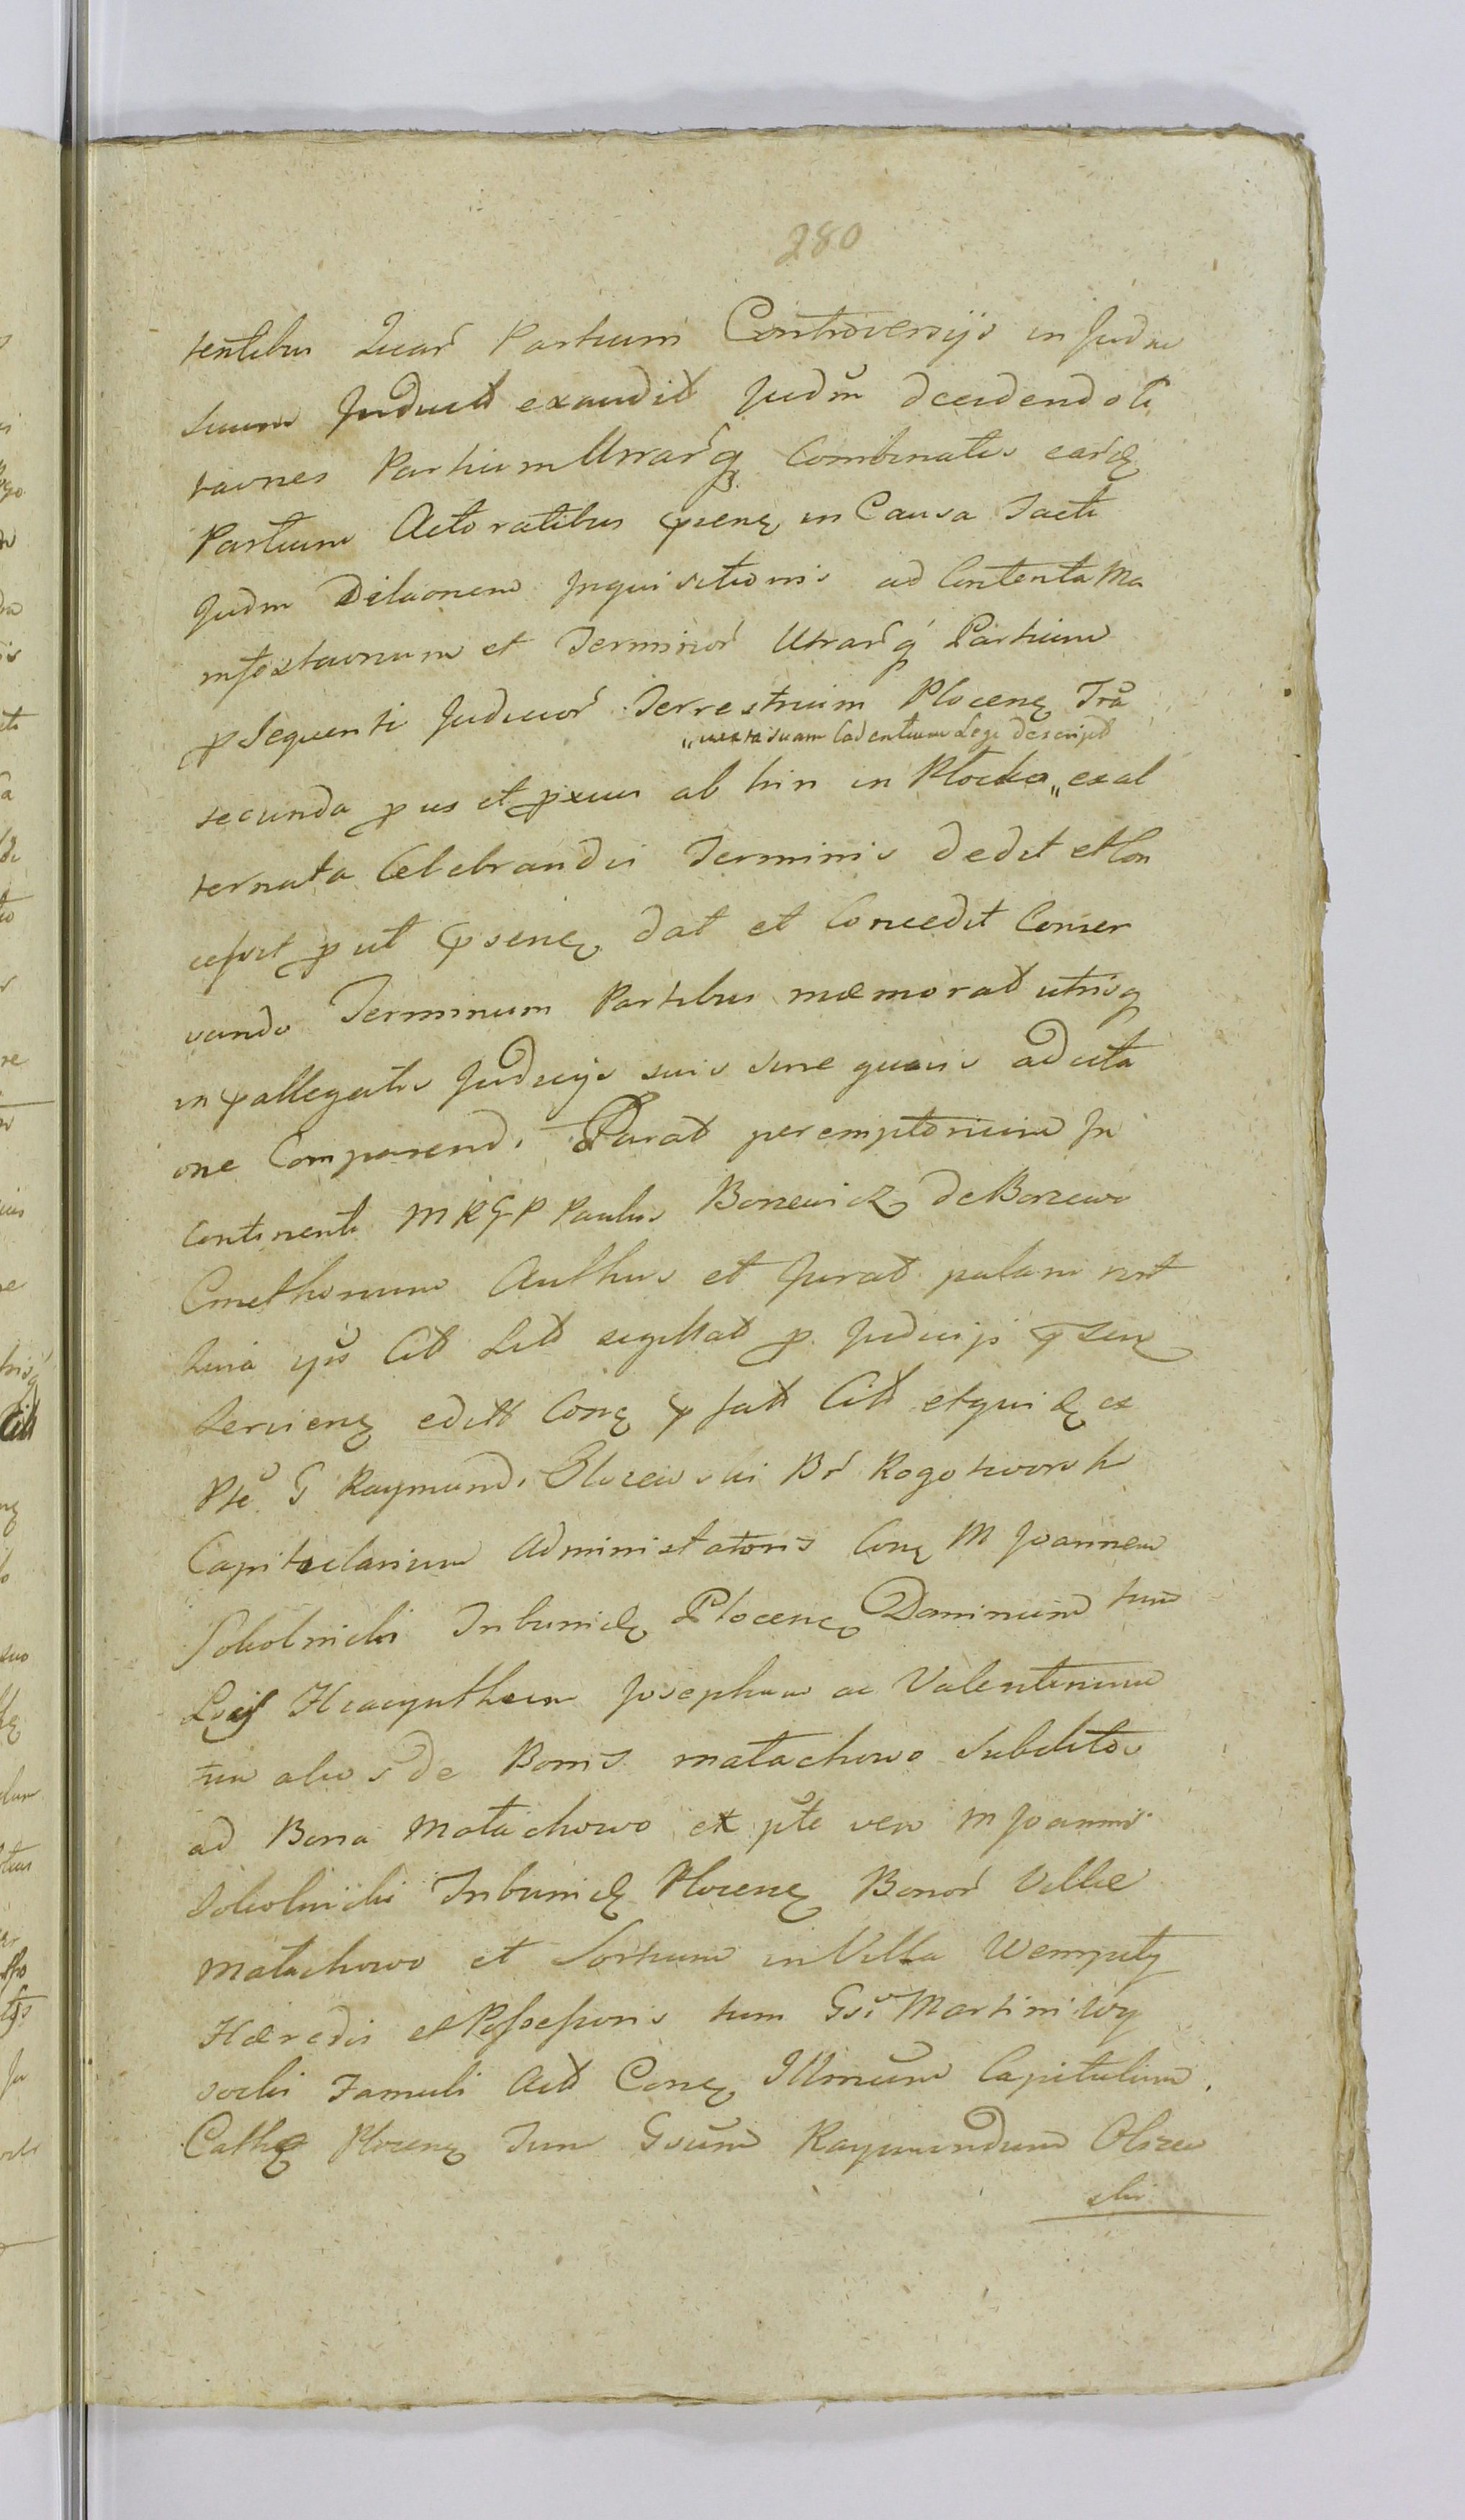 280
tentibus Quar Partium Controversijs in Judm
suum Inducit exaudit Judm decidendo Ci
taones Partium Utrarq Combinatis eard
Partium Actoratibus psens in Causa Facti
Judm Dilaonem Inquisitionis ad Contenta Ma
nifestaonum et Terminor Utrarq Partium
p Sequenti Judicior Terrestrium Plocens Tra
,,juxta suam Cadentiam Legi descript
secunda p us et pxim ab hin in Plocko,, exal
ternata Celebrandis Terminis dedit et Con
cessit p ut psens dat et Concedit Conser
vando Terminum Partibus memorat utrisq
in pallegatis Judicijs suis sine quavis adcita
one Comparend. Parat peremptorium In
continenti M R G P Paulus Borzewicz de Borzewo
Cmethonum Authus et Jurat palam
ejus Citt Litt sigillat p Judicijs psens
serviens editt Cons p fatt Citt et quid ex
Pte G Raymundi Olszewski Br Rogotworsk
Capitularium Administatoris Cons M Joannem
Sokolnicki Tribunid Plocens Dominum tum
Hiacynthum Josephum ac Valentinum
tum alios de Bonis Matachowo Subditos
ad Bona Matachowo ex pte vero M Joannis
Sokolnicki Tribunid Plocens Bonor Villae
Matachowo et Sortium in Villa Wempity
Haeredis et Possessoris tum Gsi Martini Wy
socki Famuli Actt Cons Illmum Capitulum
Cathe Plocens Tum Gsum Raymundum Olszew
ski